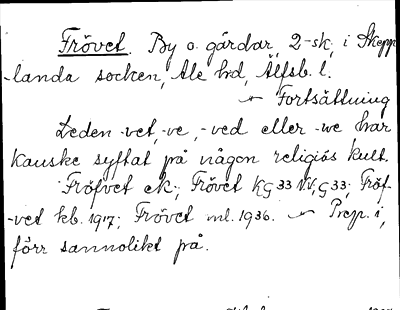 Frövet. By o. gårdar, 2-sk, i Skepp-
landa socken, Ale hd, Älfsb. l.
Fortsättning
Leden -vet, -ve, -ved eller -we har
kanske syftat på någon religiös kult.
Fröfvet ek.; Frövet KG 33 V.V, G 33; Fröf-
-vet kb. 1917; Frövet ml. 1936. Prep. i,
förr sannolikt på.